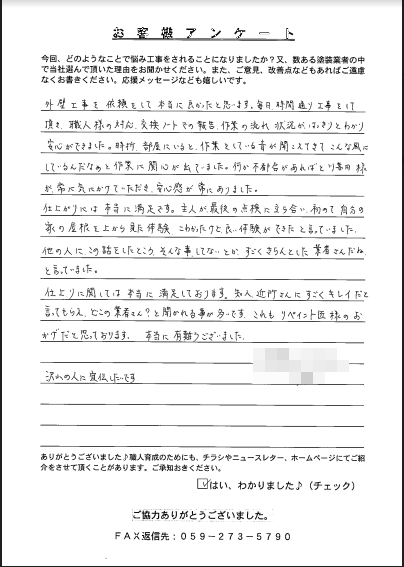 お客様アンケート
今回、どのようなことで悩み工事をされることになりましたか？又、数ある塗装業者の中
で当社選んで頂いた理由をお聞かせください。また、ご意見、改善点などもあればご遠慮
なくお書きください。応援メッセージなども嬉しいです。
外壁工事を依頼をして本当に良かたと思います。毎日、時間通り工事をして
頂き、職人様の対応、交換ノートでの報告、作業の流れ、状況がはっきりとわかり
安心ができました。時折、部屋にいると、作業をしている音が聞こえてきてこんな風に
しているんだなぁと作業に関心が出ていました。何か不都合があればと 様
が、常に気にかけていただき、安心感が常にありました。
仕上がりには本当に満足です。主人が最後の点検に立ち合い、初めて自分の
家の屋根を上から見た体験、こわかったけど、良い体験ができたと言っていました。
他の人にこの話をしたところ、そんな事してないとか、すごくきちんとした業者さんだね
と言っていました。
仕上りに関しては本当に満足しております。知人、近所さんにすごくキレイだと
言ってもらえ、どこの業者さん？と聞かれる事が多いです。これもリペイント匠様のお
かげだと思っております。 本当に有難うございました。
沢山の人に宣伝したいです
ありがとうございました♪職人育成のためにも、チラシやニュースレター、ホームページにてご紹
介をさせて頂くことがあります。ご承知おきください。
はい、わかりました♪（チェック）
ご協力ありがとうございました。
ＦＡＸ返信先：０５９－２７３－５７９０